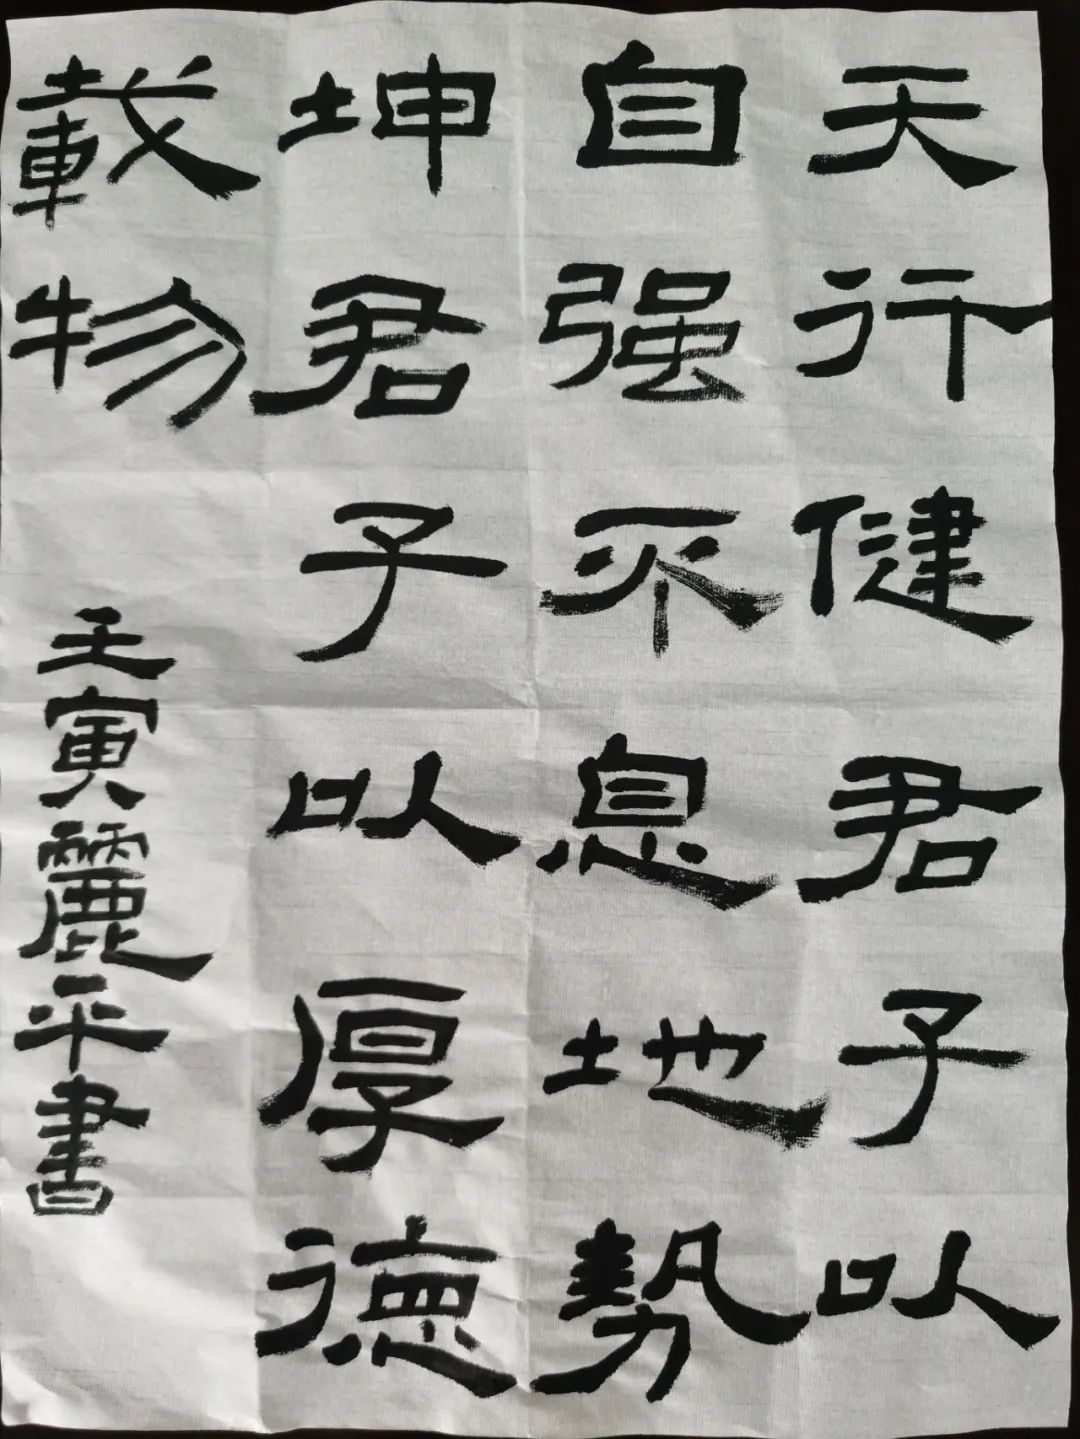 天行健君子以
自强不息地勢
坤君子以厚德
載物
壬寅麗平書